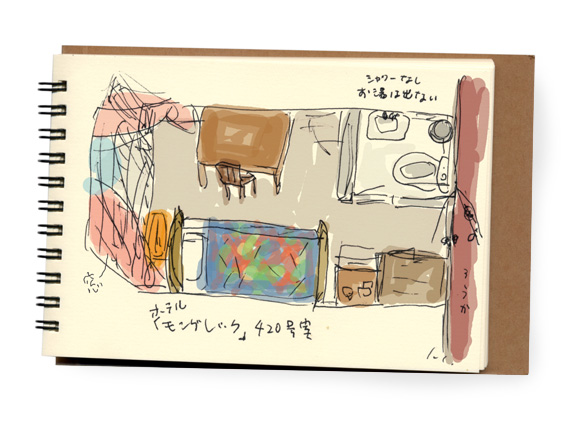 シャワーなし
お湯は出ない
窓
ろうか
ホテル
「モンゲレーク」420号室